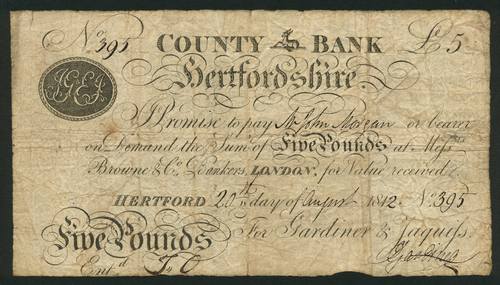 No. 395 COUNTY BANK £5
Hertfordshire.
I Promise to pay Mr. John Morgan or bearer
on Demand the Sum of FIVE POUNDS at Messrs.
Browne & Co. Bankers, LONDON, for Value received
HERTFORD 20th day of August 1812 No. 395
Five Pounds For Gardiner & Jaquess.
Entd.